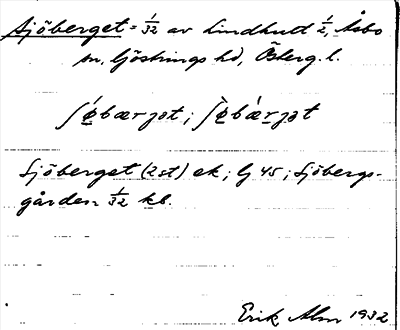 Sjöberget = 1/32 av Lindhult 1/2, Åsbo
sn, Göstrings hd, Österg. l.
ʃǿbærjət; ʃø̀bæ̀rjət
Sjöberget (2 st) ek; G 45; Sjöbergs-
gården 1/32 kl.
Erik Alm 1932